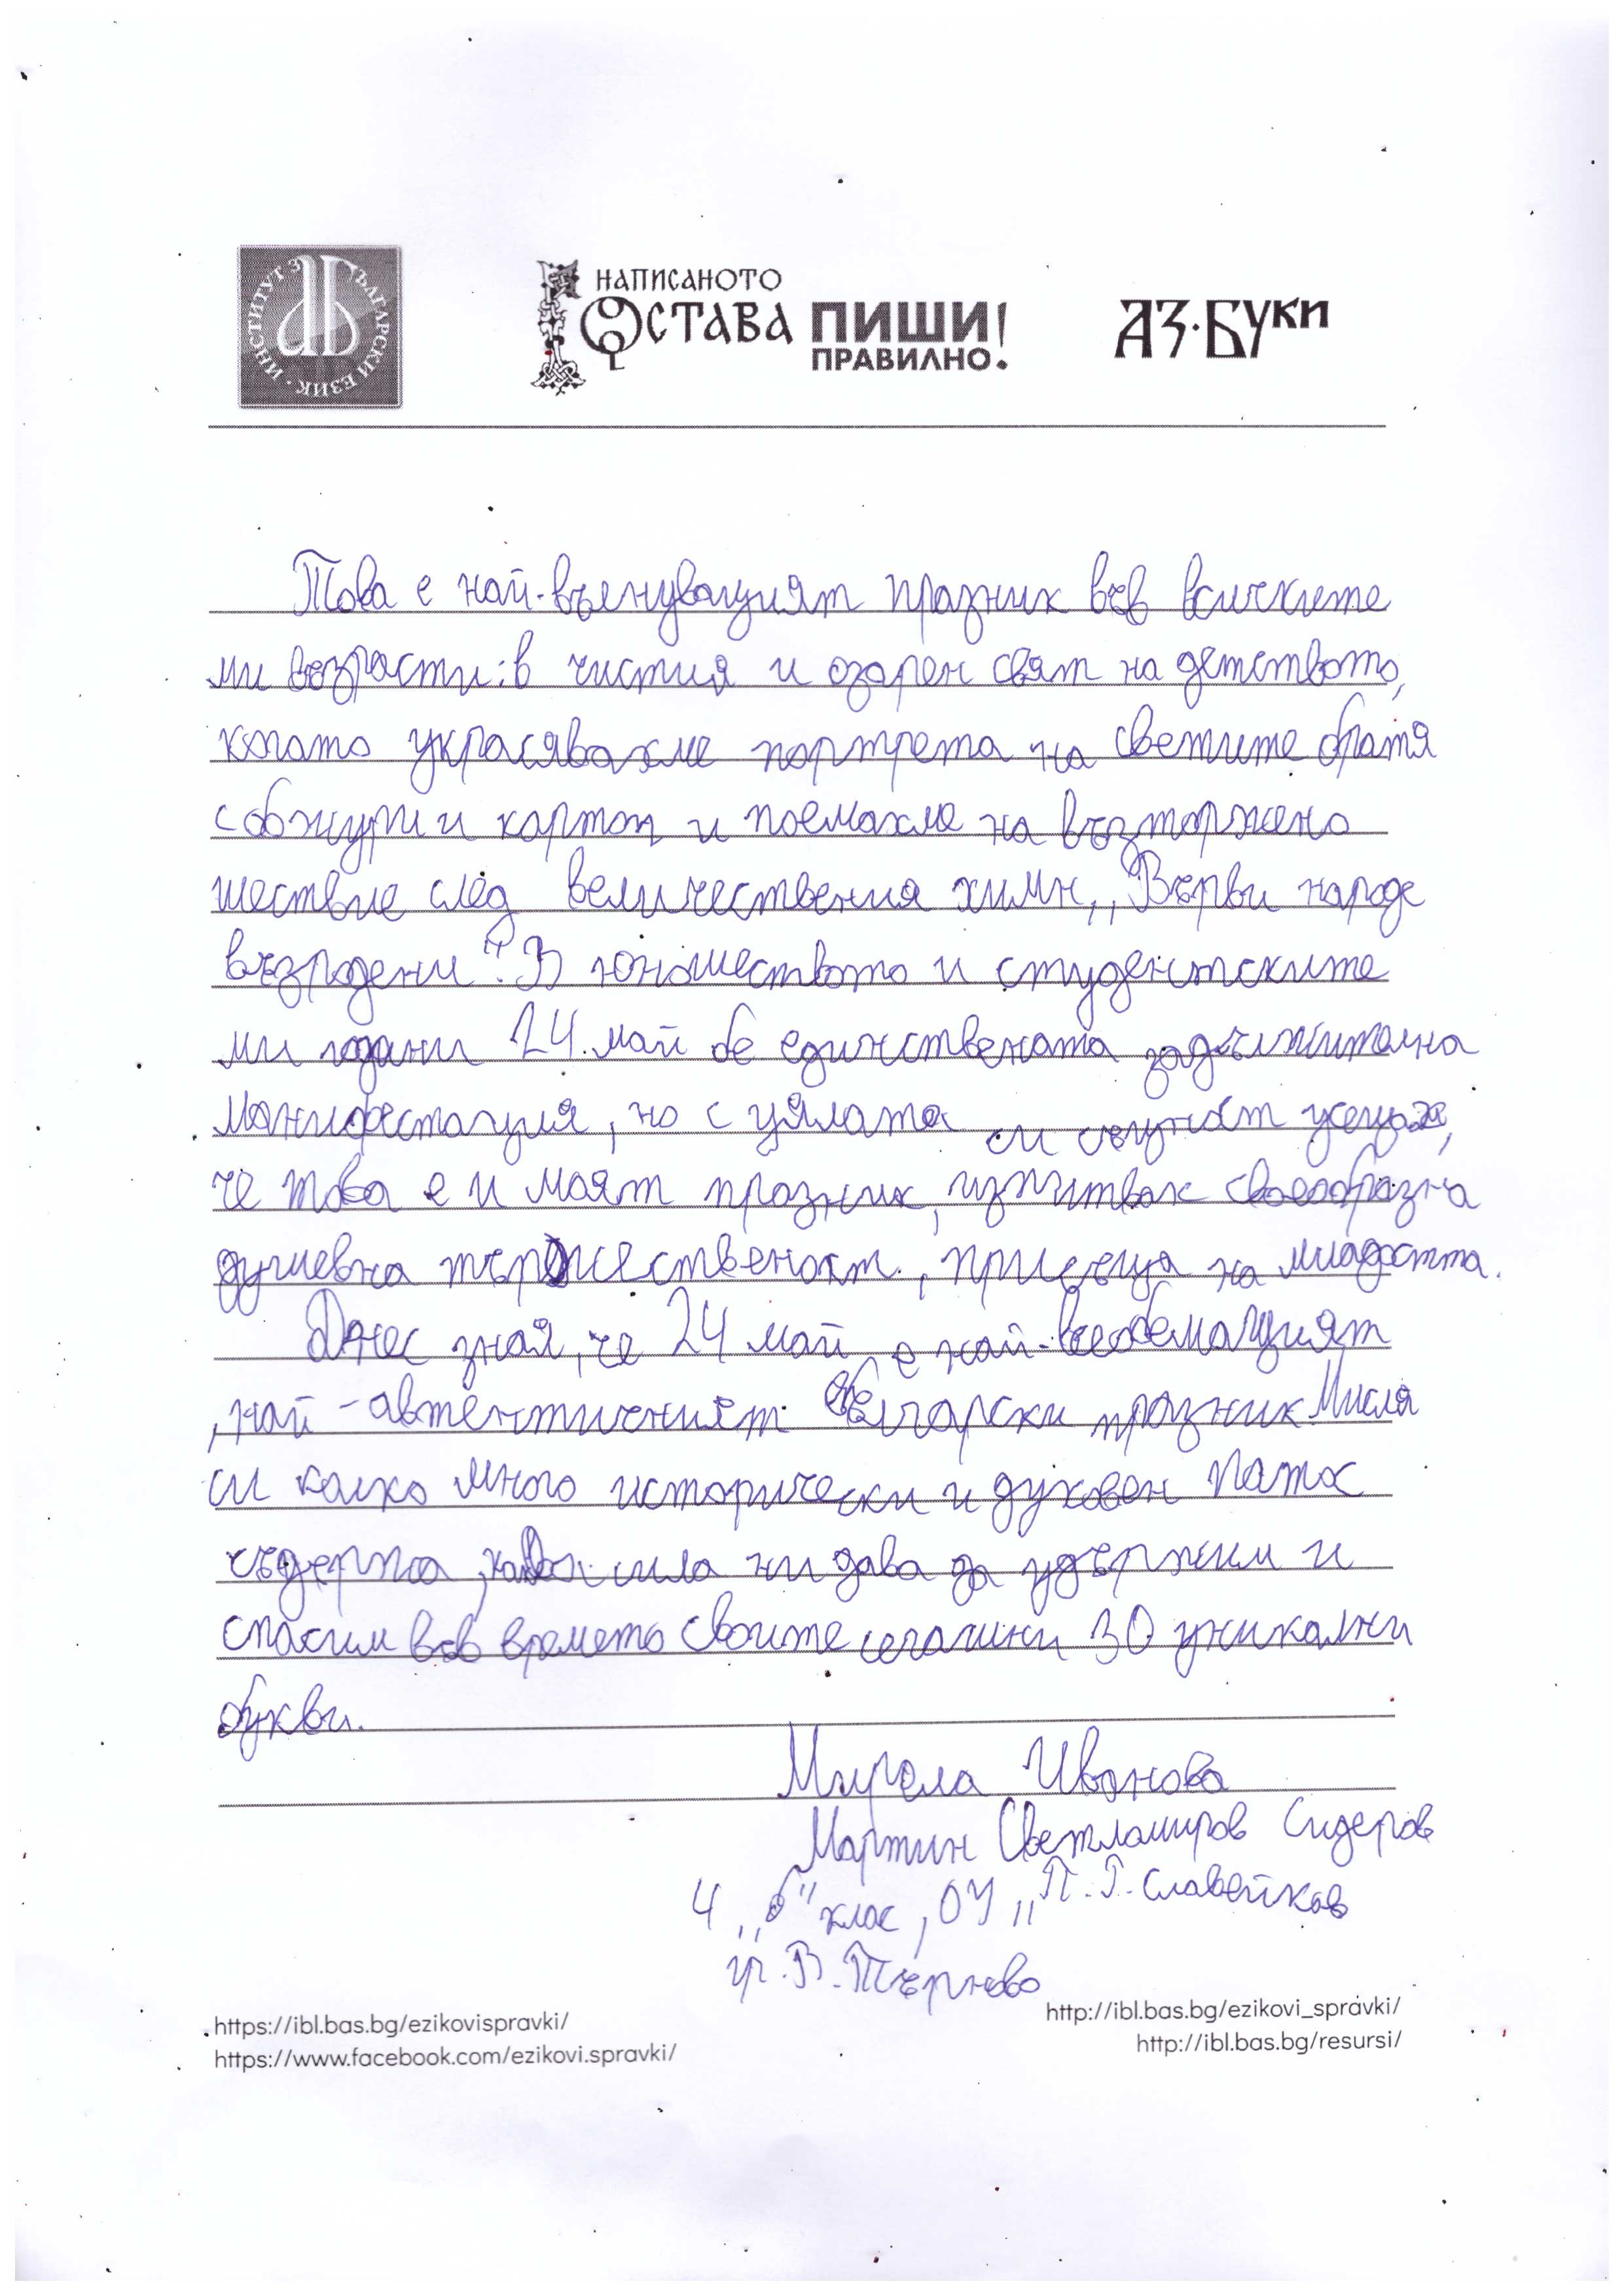 ИНСТИТУТ ЗА БЪЛГАРСКИ ЕЗИК
НАПИСАНОТО
ОСТАВА ПИШИ
ПРАВИЛНО!
АЗ·БУКИ
Това е най-вълнуващият празник във всичките
ми възрасти: в чистия и озарен свят на детството,
когато украсявахме портрета на светите братя
с божури и картон и поемахме на възторжено
шествие след величествения химн,, Върви народе
възродени". В юношеството и студентските
ми години 24. май бе единствената задължителна
манифестация, но с цялата си същност усещах,
че това е и моят празник, изпитвах своеобразна
душевна тържественост, присъща на младостта.
Днес зная, че 24 май е най-всеобемащият
, най-автентичният български празник. Мисля
си колко много исторически и духовен патос
съдържа, каква сила ни дава да удържим и
спасим във времето своите сегашни 30 уникални
букви.
Мирела Иванова
Мартин Светломиров Сидеров
4 ,,б" клас, ОУ ,,П. Р. Славейков
гр. В. Търново
https://ibl.bas.bg/ezikovispravki/
https://www.facebook.com/ezikovi.spravki/
http://ibl.bas.bg/ezikovi_spravki/
http://ibl.bas.bg/resursi/